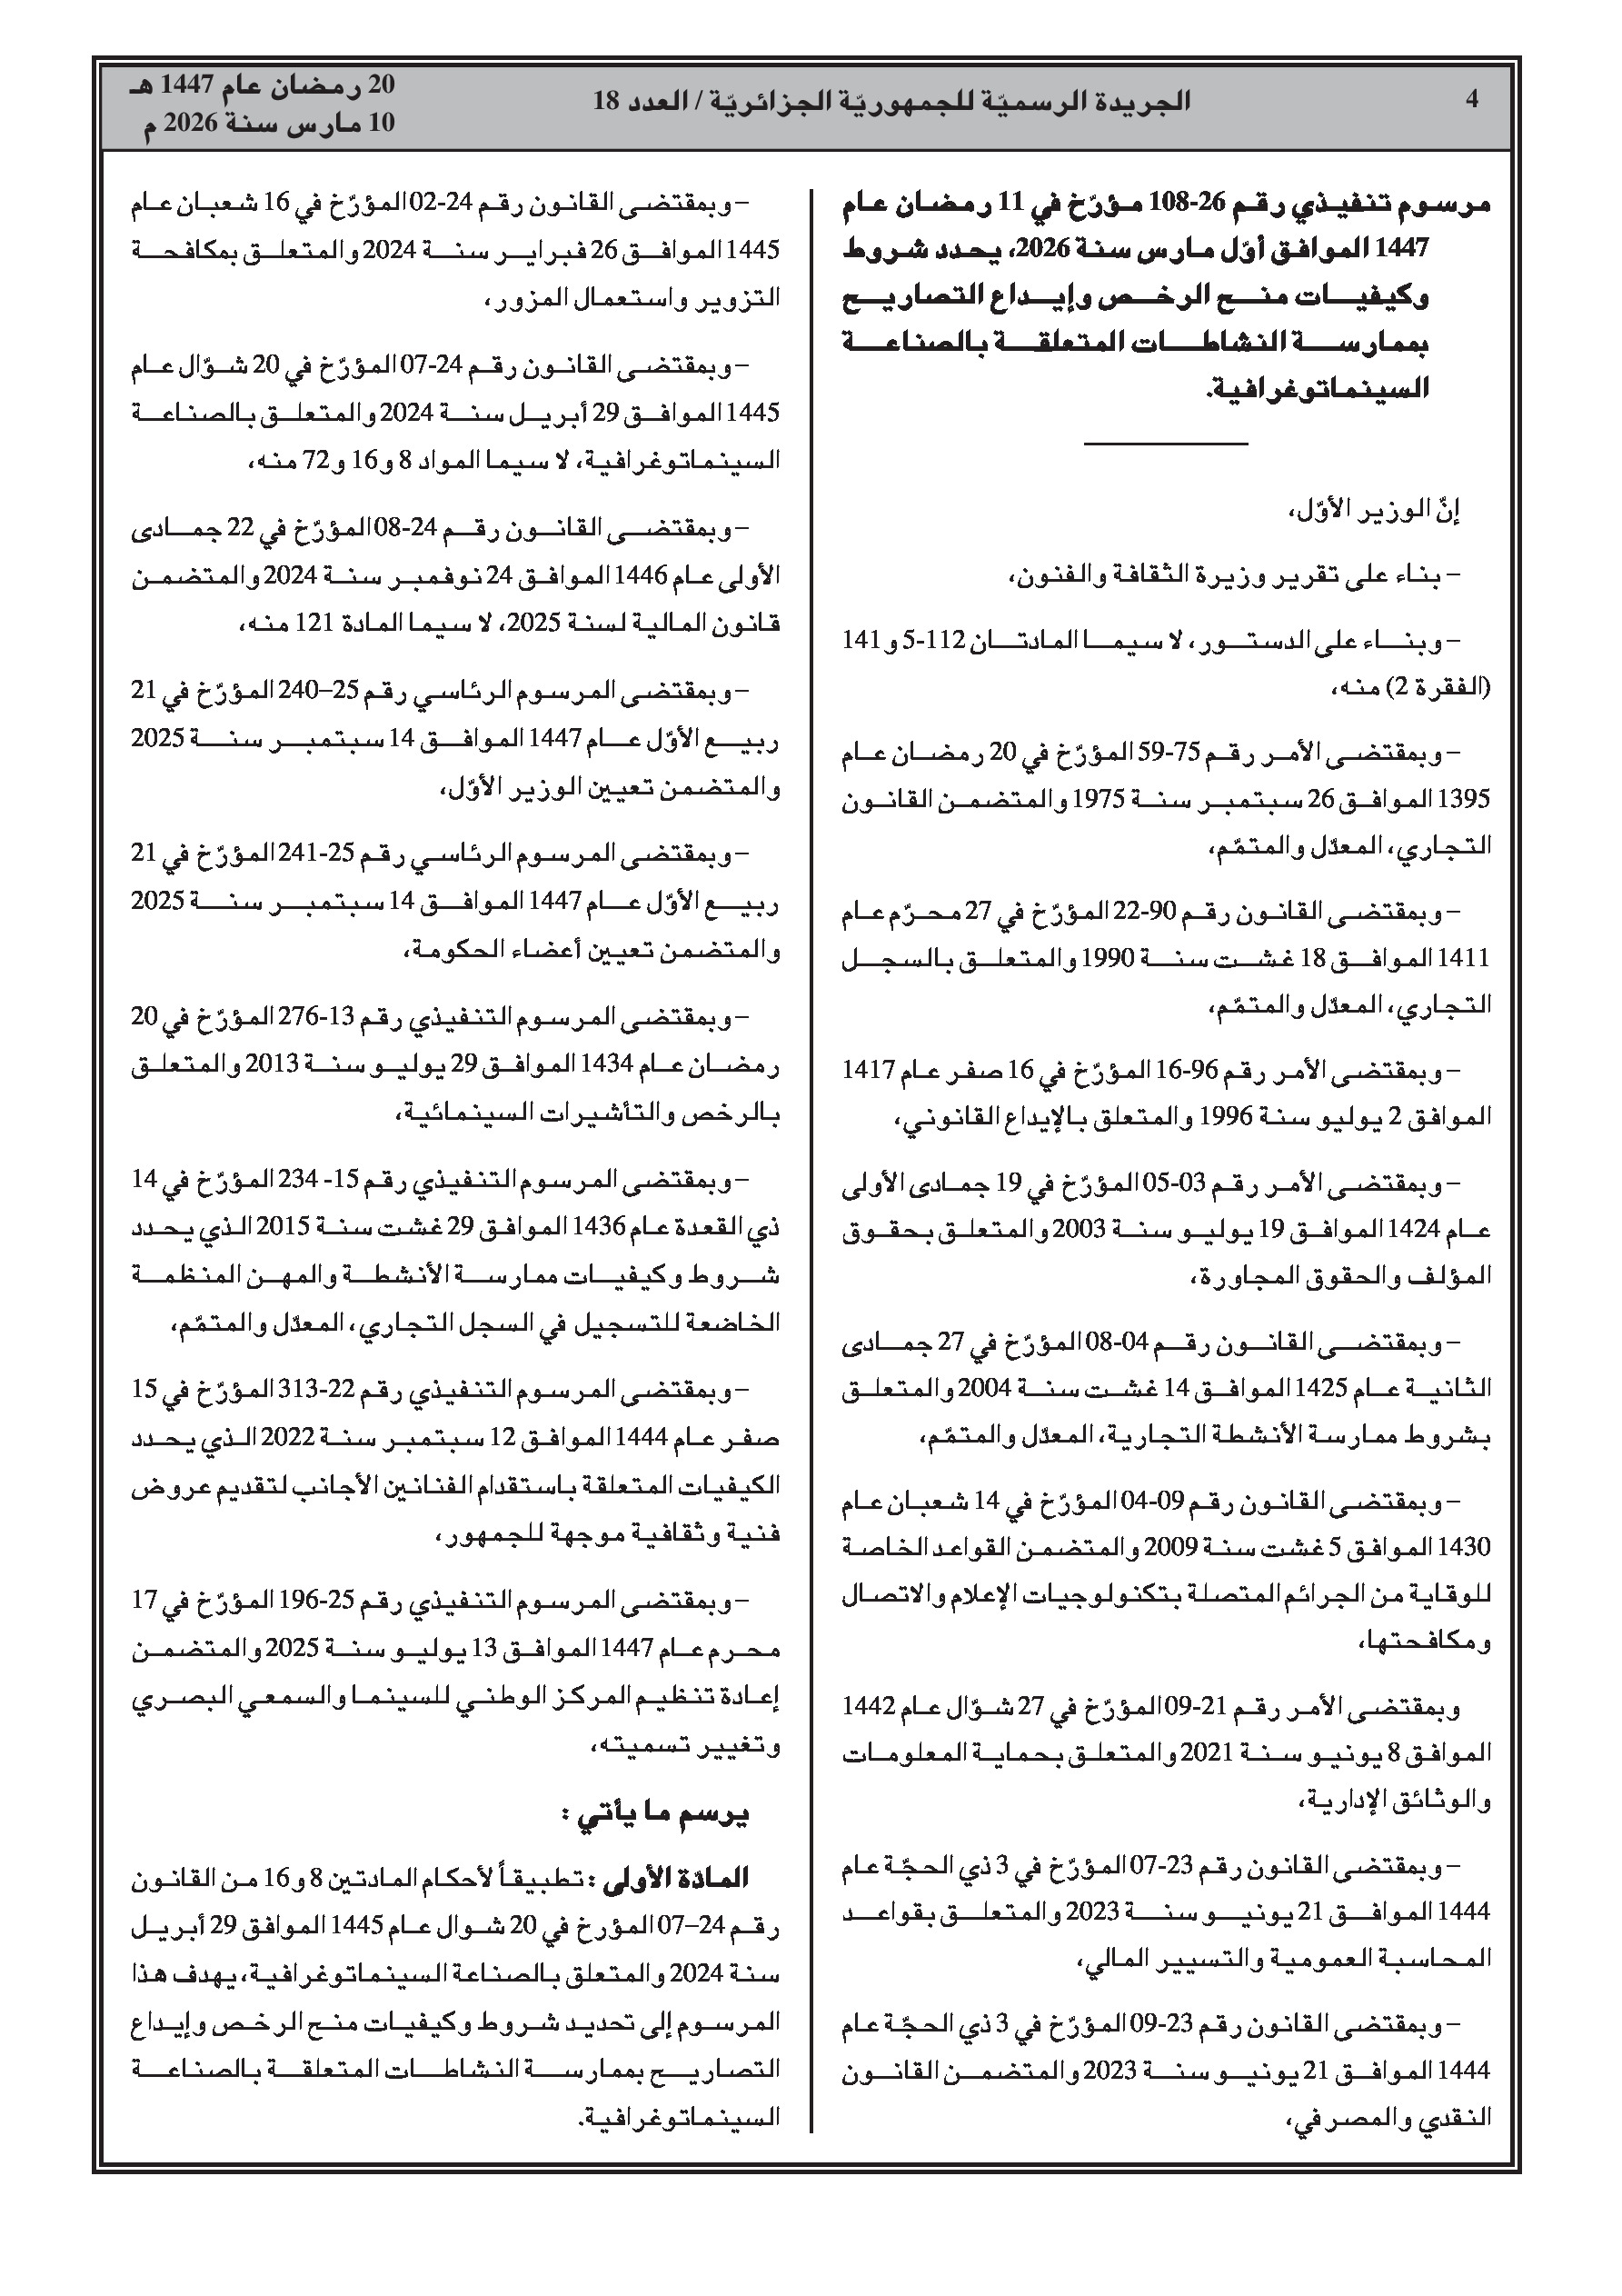 4
الجريدة الرسميّة للجمهوريّة الجزائريّة / العدد 18
20 رمضان عام 1447 هـ
10 مارس سنة 2026 م
مرسوم تنفيذي رقم 26-108 مؤرّخ في 11 رمضان عام
1447 الموافق أوّل مارس سنة 2026، يحدد شروط
وكيفيات منح الرخص وإيداع التصاريح
بممارسة النشاطات المتعلقة بالصناعة
السينماتوغرافية.
إنّ الوزير الأوّل،
– بناء على تقرير وزيرة الثقافة والفنون،
– وبناء على الدستور، لا سيما المادتان 112-5 و141
(الفقرة 2) منه،
– وبمقتضى الأمر رقم 75-59 المؤرّخ في 20 رمضان عام
1395 الموافق 26 سبتمبر سنة 1975 والمتضمن القانون
التجاري، المعدّل والمتمّم،
– وبمقتضى القانون رقم 90-22 المؤرّخ في 27 محرّم عام
1411 الموافق 18 غشت سنة 1990 والمتعلق بالسجل
التجاري، المعدّل والمتمّم،
– وبمقتضى الأمر رقم 96-16 المؤرّخ في 16 صفر عام 1417
الموافق 2 يوليو سنة 1996 والمتعلق بالإيداع القانوني،
– وبمقتضى الأمر رقم 03-05 المؤرّخ في 19 جمادى الأولى
عام 1424 الموافق 19 يوليو سنة 2003 والمتعلق بحقوق
المؤلف والحقوق المجاورة،
– وبمقتضى القانون رقم 04-08 المؤرّخ في 27 جمادى
الثانية عام 1425 الموافق 14 غشت سنة 2004 والمتعلق
بشروط ممارسة الأنشطة التجارية، المعدّل والمتمّم،
– وبمقتضى القانون رقم 09-04 المؤرّخ في 14 شعبان عام
1430 الموافق 5 غشت سنة 2009 والمتضمن القواعد الخاصة
للوقاية من الجرائم المتصلة بتكنولوجيات الإعلام والاتصال
ومكافحتها،
وبمقتضى الأمر رقم 21-09 المؤرّخ في 27 شوّال عام 1442
الموافق 8 يونيو سنة 2021 والمتعلق بحماية المعلومات
والوثائق الإدارية،
– وبمقتضى القانون رقم 23-07 المؤرّخ في 3 ذي الحجّة عام
1444 الموافق 21 يونيو سنة 2023 والمتعلق بقواعد
المحاسبة العمومية والتسيير المالي،
– وبمقتضى القانون رقم 23-09 المؤرّخ في 3 ذي الحجّة عام
1444 الموافق 21 يونيو سنة 2023 والمتضمن القانون
النقدي والمصرفي،
– وبمقتضى القانون رقم 24-02 المؤرّخ في 16 شعبان عام
1445 الموافق 26 فبراير سنة 2024 والمتعلق بمكافحة
التزوير واستعمال المزور،
– وبمقتضى القانون رقم 24-07 المؤرّخ في 20 شوّال عام
1445 الموافق 29 أبريل سنة 2024 والمتعلق بالصناعة
السينماتوغرافية، لا سيما المواد 8 و16 و72 منه،
– وبمقتضى القانون رقم 24-08 المؤرّخ في 22 جمادى
الأولى عام 1446 الموافق 24 نوفمبر سنة 2024 والمتضمن
قانون المالية لسنة 2025، لا سيما المادة 121 منه،
– وبمقتضى المرسوم الرئاسي رقم 25–240 المؤرّخ في 21
ربيع الأوّل عام 1447 الموافق 14 سبتمبر سنة 2025
والمتضمن تعيين الوزير الأوّل،
– وبمقتضى المرسوم الرئاسي رقم 25-241 المؤرّخ في 21
ربيع الأوّل عام 1447 الموافق 14 سبتمبر سنة 2025
والمتضمن تعيين أعضاء الحكومة،
– وبمقتضى المرسوم التنفيذي رقم 13-276 المؤرّخ في 20
رمضان عام 1434 الموافق 29 يوليو سنة 2013 والمتعلق
بالرخص والتأشيرات السينمائية،
– وبمقتضى المرسوم التنفيذي رقم 15- 234 المؤرّخ في 14
ذي القعدة عام 1436 الموافق 29 غشت سنة 2015 الذي يحدد
شروط وكيفيات ممارسة الأنشطة والمهن المنظمة
الخاضعة للتسجيل في السجل التجاري، المعدّل والمتمّم،
– وبمقتضى المرسوم التنفيذي رقم 22-313 المؤرّخ في 15
صفر عام 1444 الموافق 12 سبتمبر سنة 2022 الذي يحدد
الكيفيات المتعلقة باستقدام الفنانين الأجانب لتقديم عروض
فنية وثقافية موجهة للجمهور،
– وبمقتضى المرسوم التنفيذي رقم 25-196 المؤرّخ في 17
محرم عام 1447 الموافق 13 يوليو سنة 2025 والمتضمن
إعادة تنظيم المركز الوطني للسينما والسمعي البصري
وتغيير تسميته،
يرسم ما يأتي :
المادّة الأولى : تطبيقاً لأحكام المادتين 8 و16 من القانون
رقم 24–07 المؤرخ في 20 شوال عام 1445 الموافق 29 أبريل
سنة 2024 والمتعلق بالصناعة السينماتوغرافية، يهدف هذا
المرسوم إلى تحديد شروط وكيفيات منح الرخص وإيداع
التصاريح بممارسة النشاطات المتعلقة بالصناعة
السينماتوغرافية.